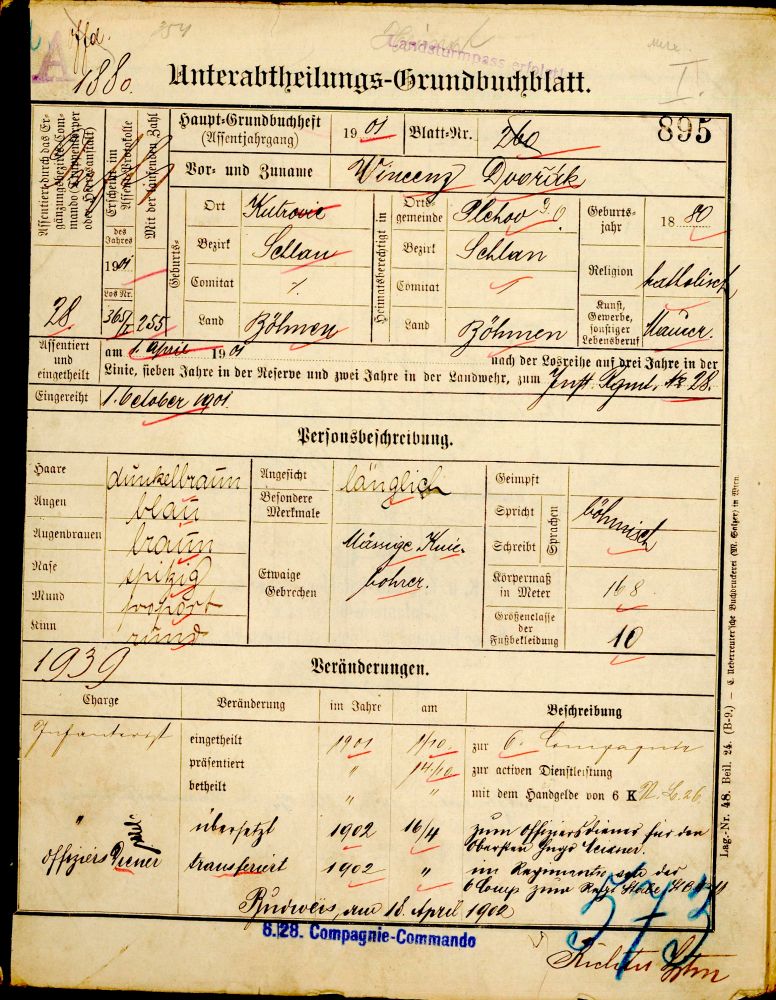 1880.
Landsturmpass erfolgt
I.
Unterabtheilungs-Grundbuchblatt.
Assentiert durch das Ergänzungsbezirks-Commando
Erscheint im Assent-Protokolle
Mit der laufenden Zahl
des Jahres
1901
Los Nr.
28
365/I
255
Haupt-Grundbuchheft
(Assentjahrgang)
1901
Blatt-Nr.
260
895
Vor- und Zuname
Vincenz Dvořák
Geburts-
Ort
Kutrovic
Bezirk
Schlan
Comitat
Land
Böhmen
Heimatsberechtigt in
Ortsgemeinde
Plchov
Bezirk
Schlan
Comitat
Land
Böhmen
Geburtsjahr
1880
Religion
katholisch
Kunst,
Gewerbe,
sonstiger
Lebensberuf
Maurer.
Assentiert
und
eingetheilt
am 1. April 1901
nach der Losreihe auf drei Jahre in der
Linie, sieben Jahre in der Reserve und zwei Jahre in der Landwehr, zum Inft. Rgmt. Nr 28.
Eingereiht
1. October 1901.
Personsbeschreibung.
Haare
dunkelbraun
Augen
blau
Augenbrauen
braun
Nase
spitzig
Mund
proport
Kinn
rund
Angesicht
länglich
Besondere
Merkmale
Etwaige
Gebrechen
Mässige Kniebohrer.
Geimpft
Spricht
Schreibt
Sprachen
böhmisch
Körpermaß
in Meter
168
Größenclasse
der
Fußbekleidung
10
1939
Veränderungen.
Charge
Veränderung
im Jahre
am
Beschreibung
Infanterist
eingetheilt
1901
1/10.
zur 6. Compagnie
präsentiert
"
14/10
zur activen Dienstleistung
betheilt
"
"
mit dem Handgelde von 6 K
"
übersetzt
1902
16/4
zum Offiziersdiener für den
Obersten Hugo
Offiziers Diener
transferiert
1902
"
im Regimente von der
6 Comp zum Regts Stabe
Budweis, am 18. April 1902
6./28. Compagnie-Commando
573
Richter
Lag.-Nr. 48. Beil. 24. (B-9.) — C. Ueberreuter'sche Buchdruckerei (M. Salzer) in Wien.